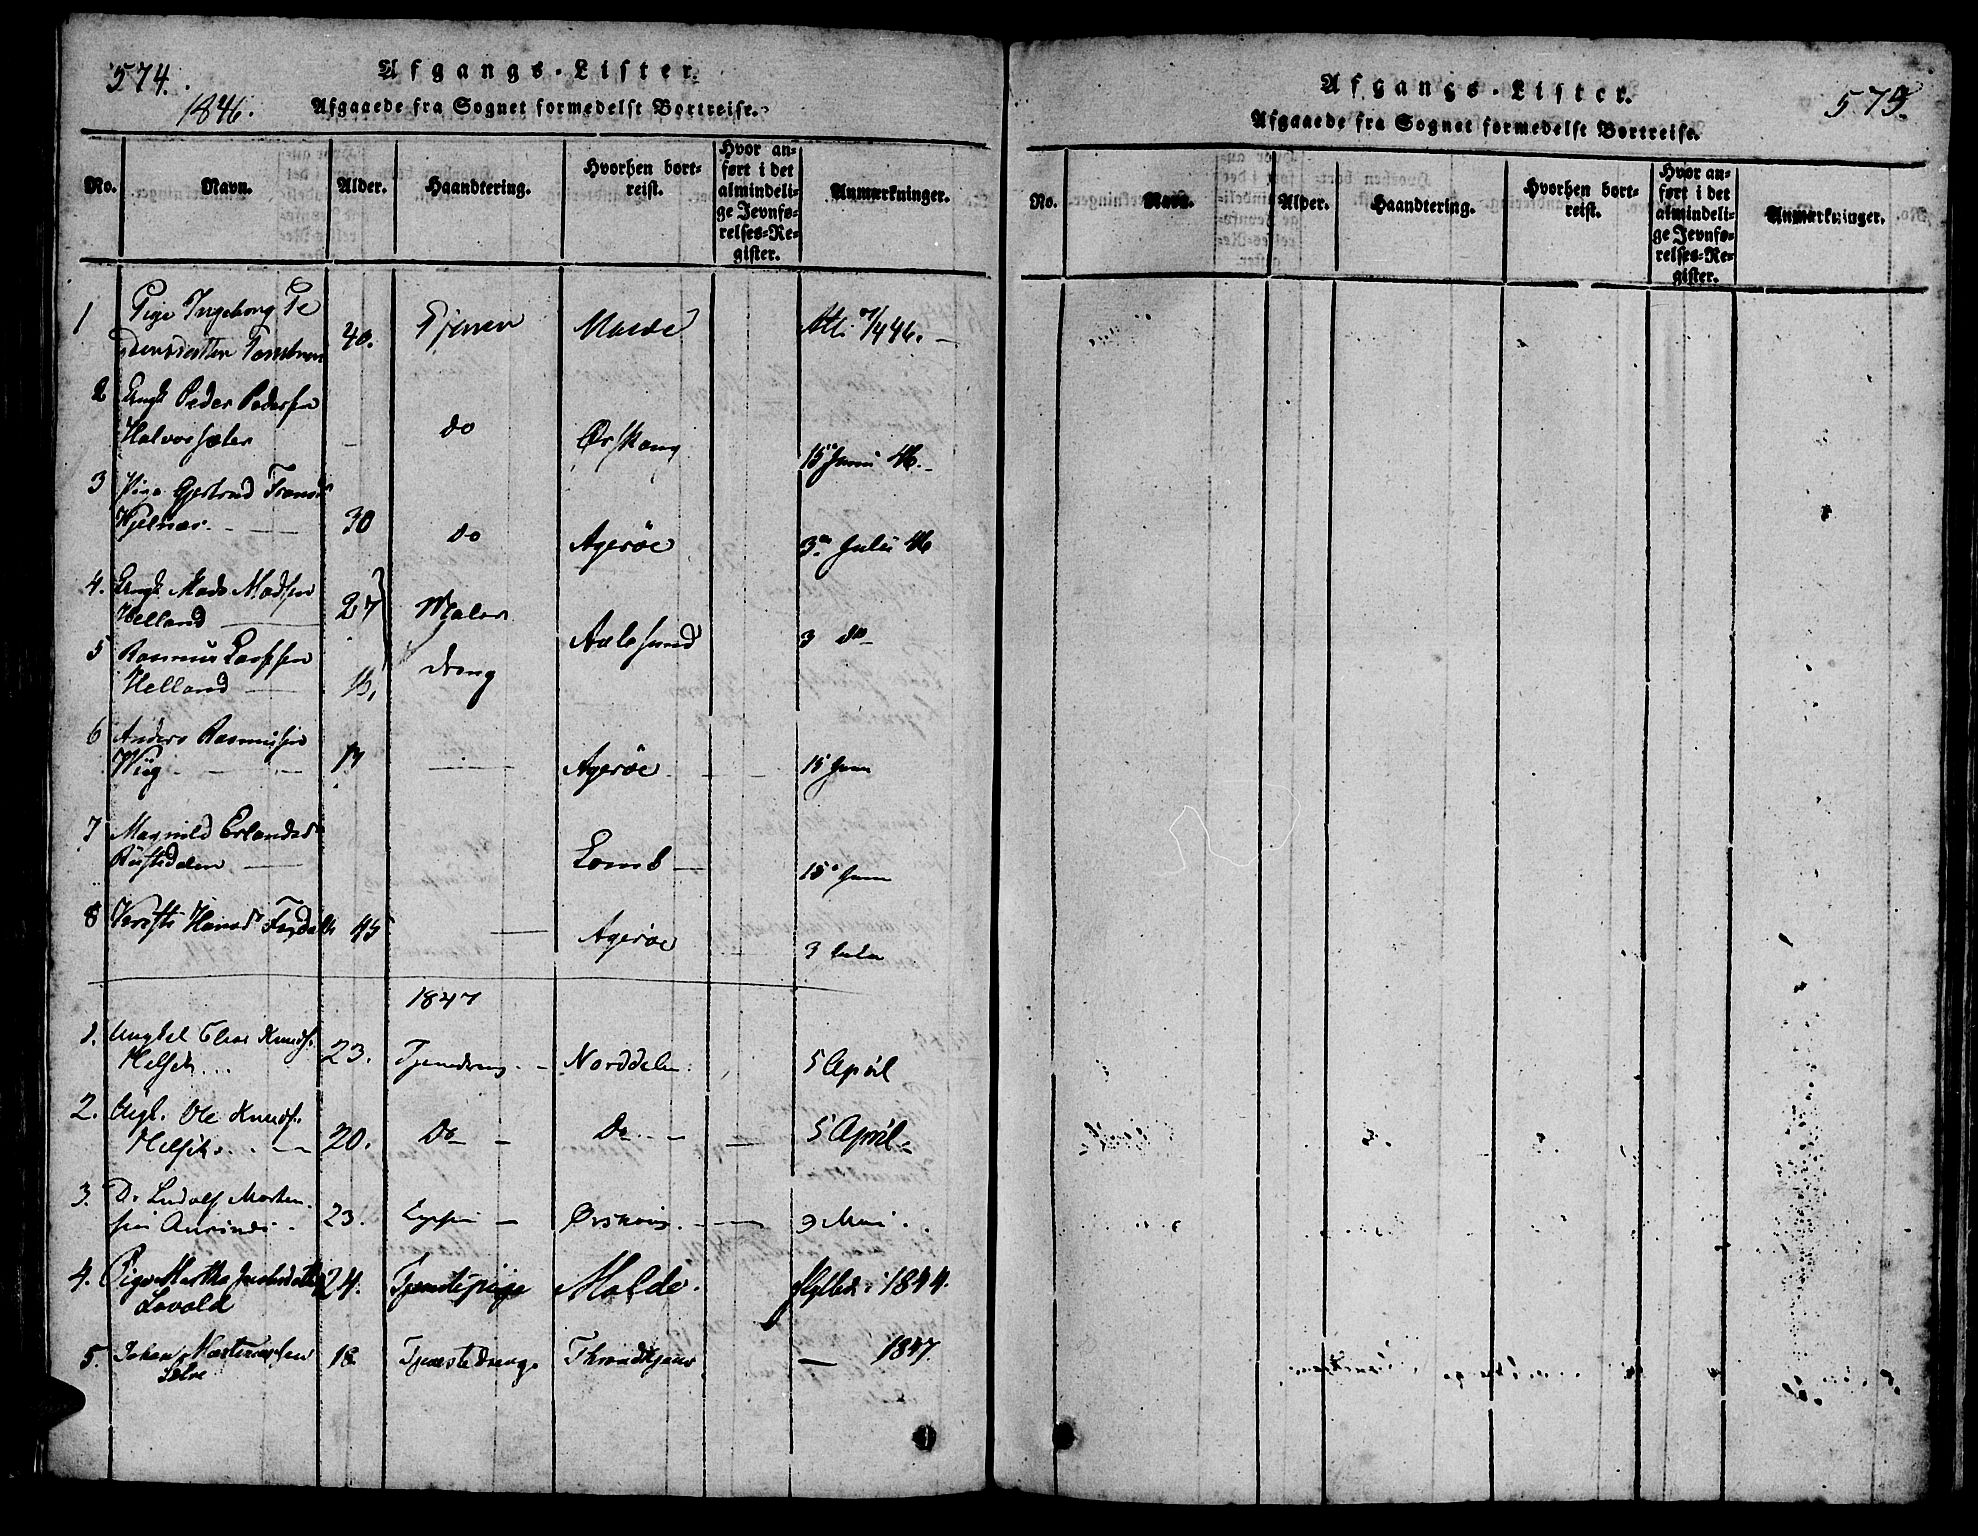 574.
Afgangs-Lister.
1846.
Afgaaede fra Sognet formedelst Bortreise.
No. Navn. Alder. Haandtering. Hvorhen bortreist. Hvor anført i det almindelige Jevnførelses-Register. Anmærkninger.
1 Pige Ingeborg Pe
dersdatter 40. Tjener Molde Att. 446.
2 Ungk Peder Pedersen
Halvorsæter do Ørskoug 15 Juni 46.
3 Pige Gjertrud Fransd
Hjelnæs 30 do Agerøe 3 Julii 46
4. Ungk Mads Madsen
Helland 27 Maler Aalesund 3 do
5 Rasmus
Helland Dreng
6 Anders Rasmusen
Wiig 17 Agerøe 15 Juni
7 Magnild Erlandsd
Lomb 15 Juni
8 Hansd 45 Agerøe 3 Julii
1847
1. Ungkel Knuds.
23. Norddalen 5 April
2. Ungk. Ole Knuds.
20. Do Do 5 April
3. Do Ludolf Morten
sen 23. Ørskoug 9 Mai
4. Pige Martha Jacobsdatter
Lovold 24. Tjenstepige Molde. 1844.
5. Johan Martinussen
18 Tjenstedreng Throndhjem 1847.
Afgangs-Lister.
575.
Afgaaede fra Sognet formedelst Bortreise.
No. Navn. Alder. Haandtering. Hvorhen bortreist. Hvor anført i det almindelige Jevnførelses-Register. Anmærkninger.